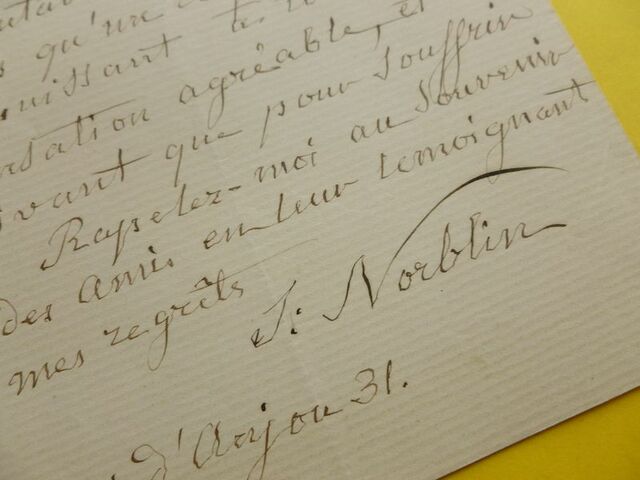 qu'un
uissant
ersation agréable, et
vant que pour souffrir
Rapelez-moi au souvenir
des amis en leur temoignant
mes regrêts
S: Norblin
d'Anjou 31.